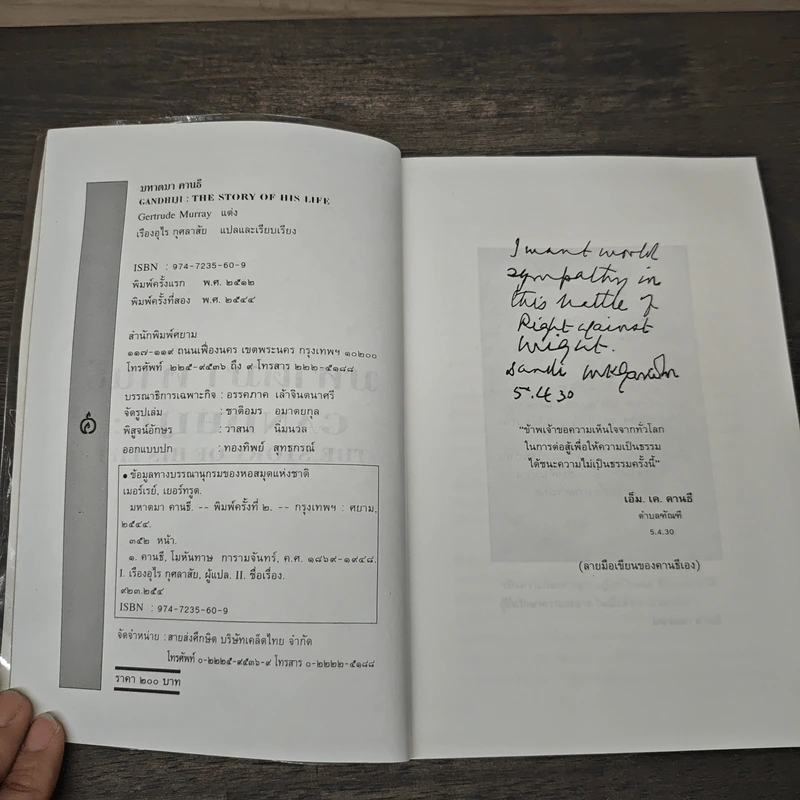 มหาตมา คานธี
GANDHIJI : THE STORY OF HIS LIFE
Gertrude Murray แต่ง
เรืองอุไร กุศลาสัย แปลและเรียบเรียง
ISBN : 974-7235-60-9
พิมพ์ครั้งแรก พ.ศ. ๒๕๑๒
พิมพ์ครั้งที่สอง พ.ศ. ๒๕๔๔
สำนักพิมพ์ศยาม
๑๑๗-๑๑๙ ถนนเฟื่องนคร เขตพระนคร กรุงเทพฯ ๑๐๒๐๐
โทรศัพท์ ๒๒๕-๙๕๓๖ ถึง ๙ โทรสาร ๒๒๒-๕๑๘๘
บรรณาธิการเฉพาะกิจ : อรรคภาค เล้าจินตนาศรี
จัดรูปเล่ม : ชาติอมร อมาตยกุล
พิสูจน์อักษร : วาสนา นิ่มนวล
ออกแบบปก : ทองทิพย์ สุทธกรณ์
● ข้อมูลทางบรรณานุกรมของหอสมุดแห่งชาติ
เมอร์เรย์, เยอร์ทรูด.
มหาตมา คานธี. -- พิมพ์ครั้งที่ ๒. -- กรุงเทพฯ : ศยาม,
๒๕๔๔.
๓๕๒ หน้า.
๑. คานธี, โมหันทาษ การามจันทร์, ค.ศ. ๑๘๖๙-๑๙๔๘.
I. เรืองอุไร กุศลาสัย, ผู้แปล. II. ชื่อเรื่อง.
๙๒๓.๒๕๔
ISBN : 974-7235-60-9
จัดจำหน่าย : สายส่งศึกษิต บริษัทเคล็ดไทย จำกัด
โทรศัพท์ ๐-๒๒๒๕-๙๕๓๖-๙ โทรสาร ๐-๒๒๒๒-๕๑๘๘
ราคา ๒๐๐ บาท
I want world
sympathy in
this battle of
Right against
might.
Dandi MKGandhi
5.4.30
"ข้าพเจ้าขอความเห็นใจจากทั่วโลก
ในการต่อสู้เพื่อให้ความเป็นธรรม
ได้ชนะความไม่เป็นธรรมครั้งนี้"
เอ็ม. เค. คานธี
ตำบลทัณฑี
5.4.30
(ลายมือเขียนของคานธีเอง)